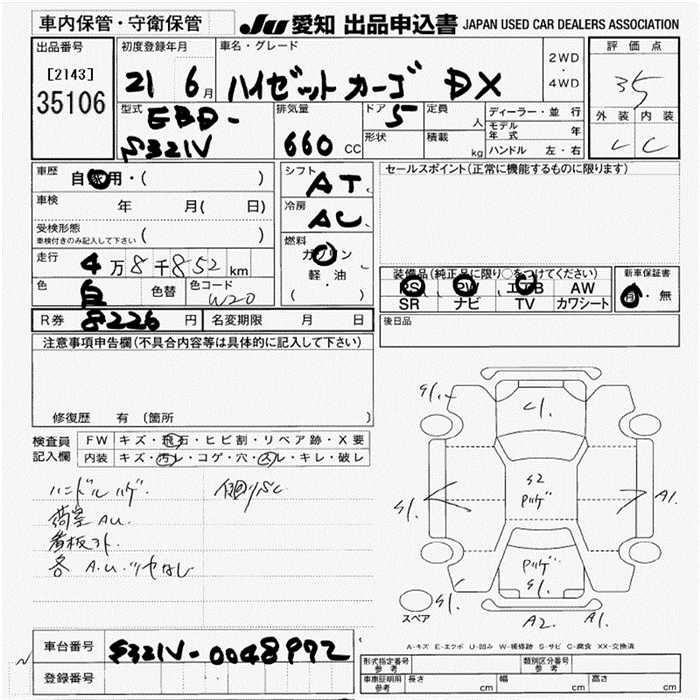 車内保管・守衛保管
JU 愛知 出品申込書 JAPAN USED CAR DEALERS ASSOCIATION
出品番号
[2143]
35106
初度登録年月
21 6月
車名・グレード
ハイゼットカーゴ DX
2WD
・
4WD
評価点
35
外装 内装
C
型式
EBD-
S321V
排気量
660 CC
ドア
5
定員
人
形状
積載
kg
ディーラー・並行
モデル年式 年
ハンドル 左・右
車歴
自家用・( )
車検
年 月( 日)
受検形態
車検付きのみ記入して下さい
( )
走行
4万8千852km
色
白
色替
色コード
W20
シフト
AT
冷房
AC
燃料
ガソリン
軽油
( )
R券 8226円
名変期限 月 日
セールスポイント(正常に機能するものに限ります)
装備品(純正品に限り○をつけてください)
PS PW エアB AW
SR ナビ TV カワシート
新車保証書
有・無
後日品
注意事項申告欄(不具合内容等は具体的に記入して下さい)
修復歴 有 (箇所
検査員記入欄
FW キズ・飛石・ヒビ割・リペア跡・X要
内装 キズ・汚レ・コゲ・穴・スレ・キレ・破レ
ハンドルハゲ
荷室AU.
看板アト.
各A.U.ツヤなし
S1.
C1.
S1.
S2
ハゲ
A1.
ハゲ
S1.
スペア
S1.
A2.
A1.
A-キズ E-エクボ U-凹み W-補修跡 S-サビ C-腐食 XX-交換済
車台番号
S321V-0048992
登録番号
形式指定番号
参考
類別区分番号
参考
車庫証明用
参考
長さ cm
幅 cm
高さ cm